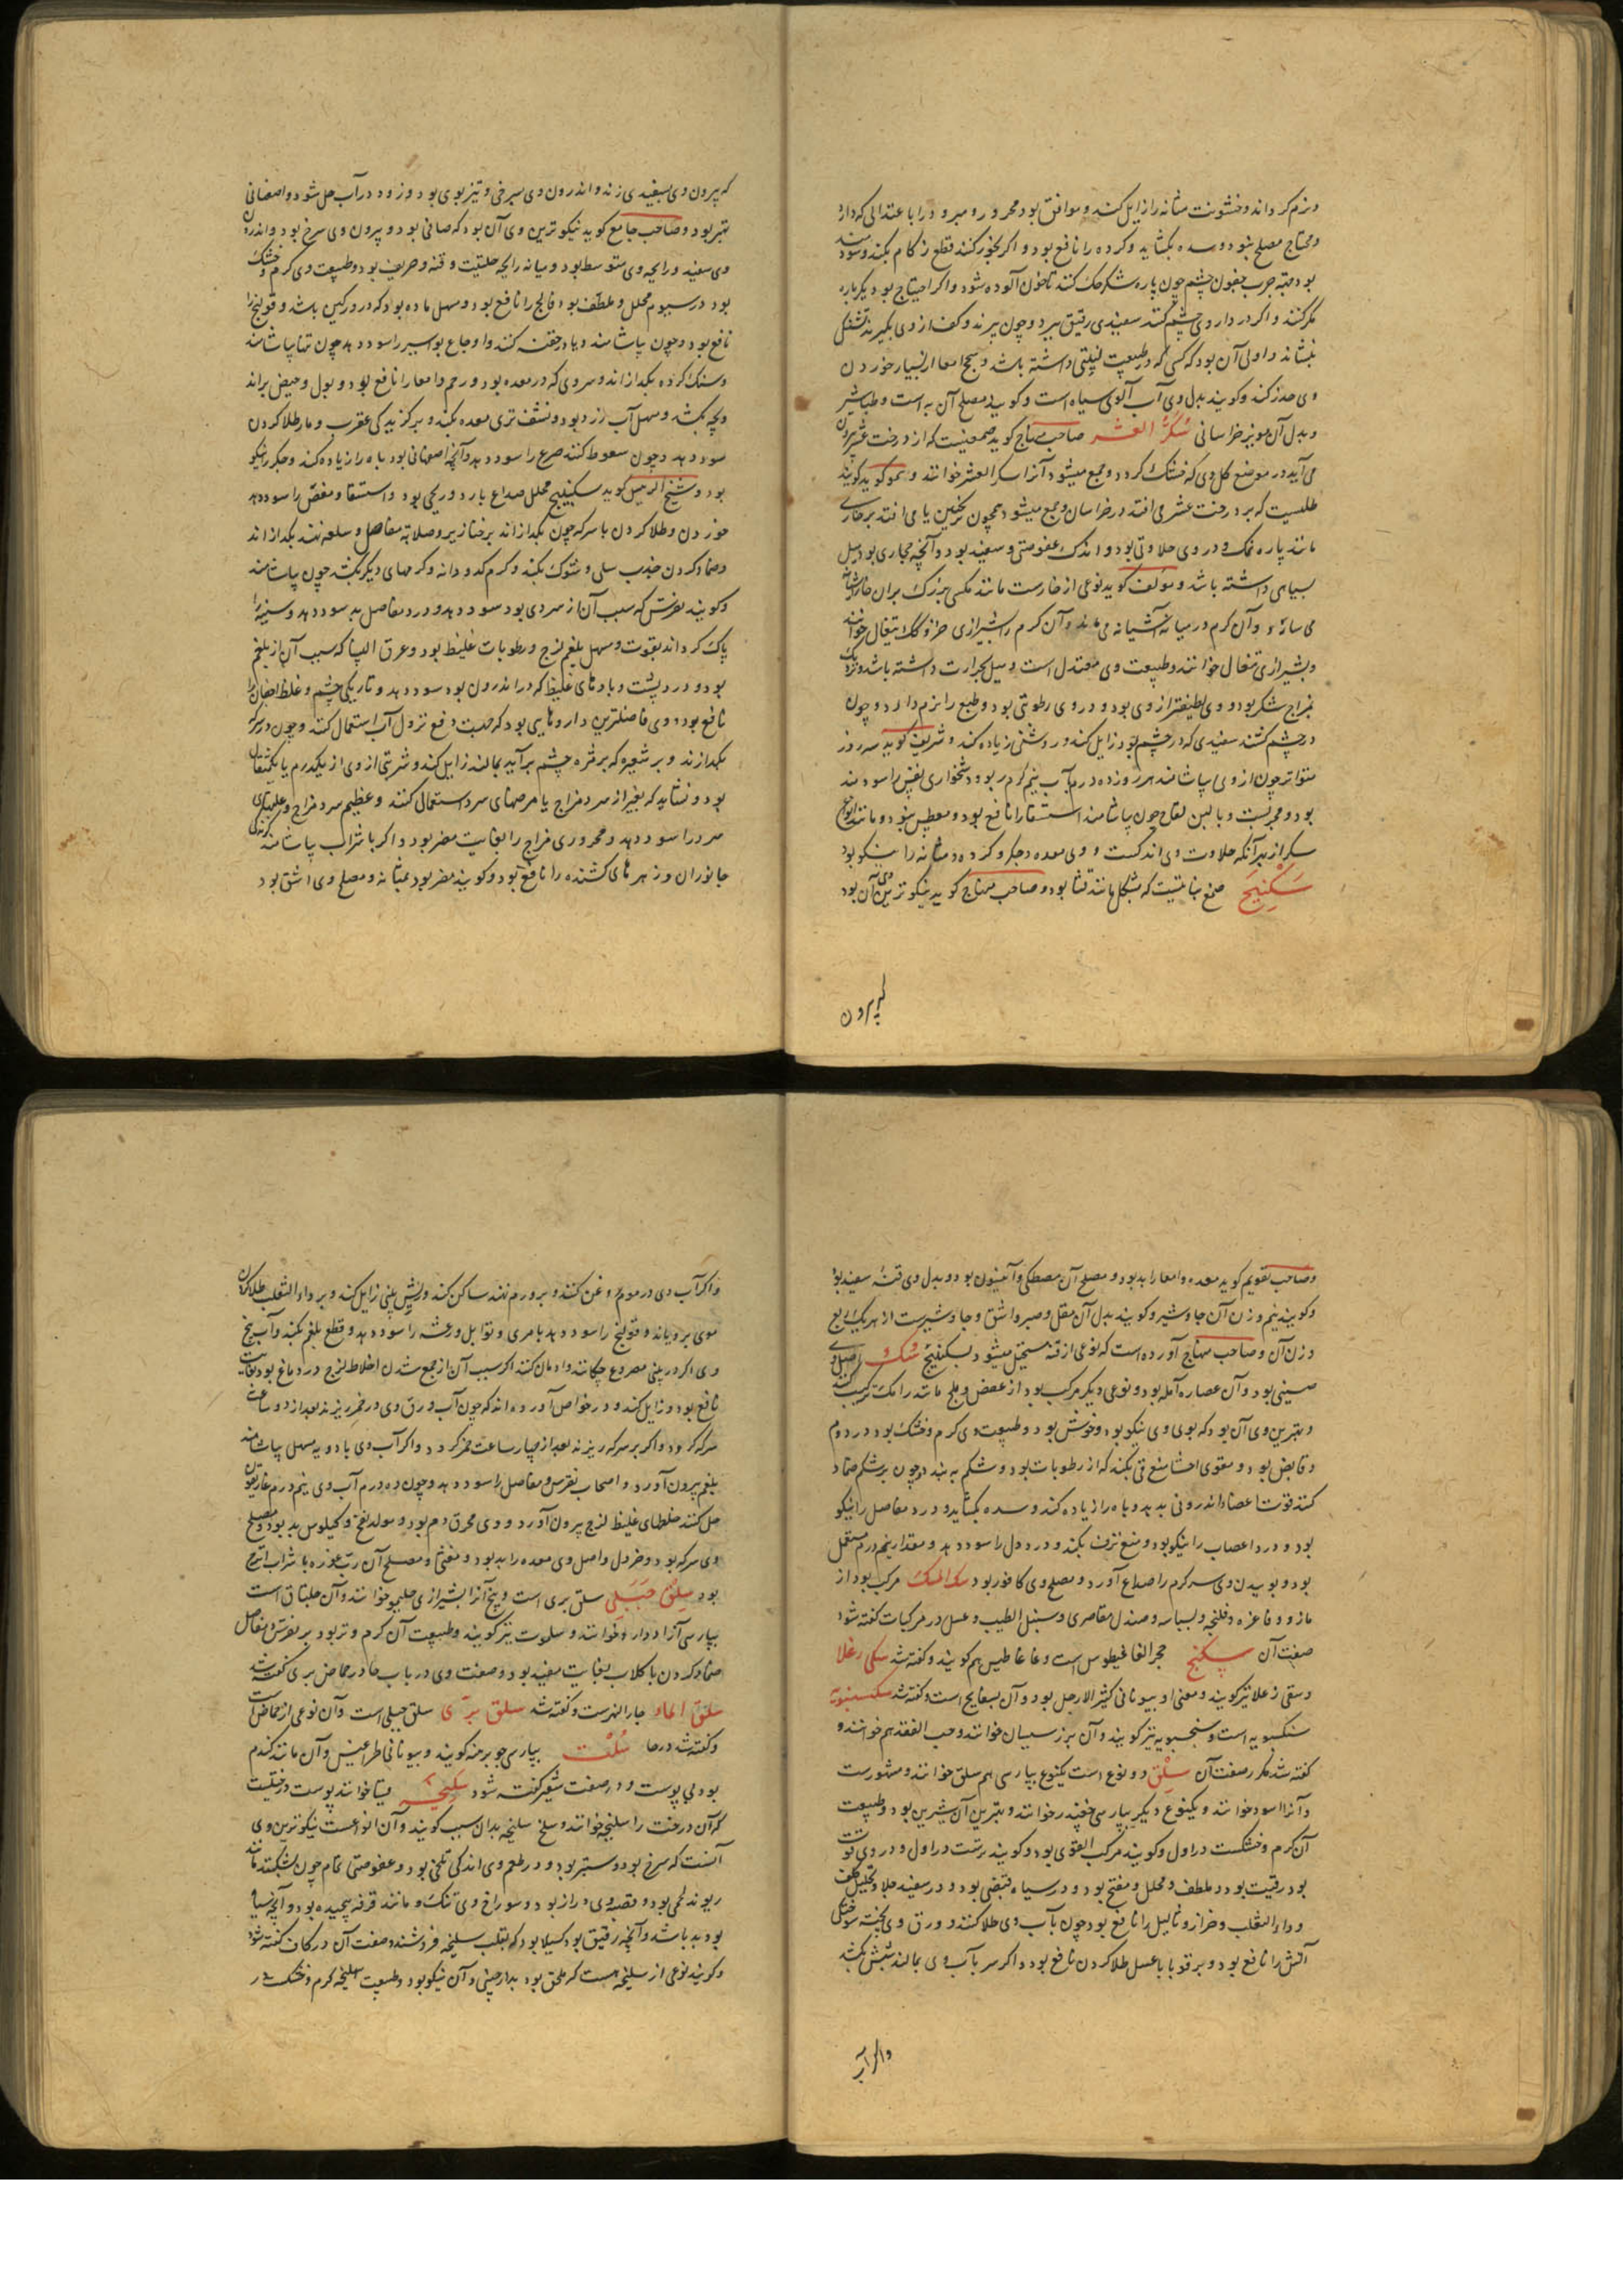 ونرم کرداند وخشونت مثانه را زایل کند وموافق بود محرور ومبرود را با عتدالی که دارد
ومحتاج مصلح نبود وسده بکشاید وکرده را نافع بود واکر بخور کنند قطع زکام بکند وسودمند
بود جرب جفون چشم چون پاره شکر حک کنند تا خون آلوده شود واکر احتیاج بود دیکرباره
مکر کنند واکر در داروی چشم کنند سفیدی رقیق ببرد وچون بپزند وکف از وی بکیرند تشنکی
بنشاند واولی آن بود که کسی که در طبیعت لینتی داشته باشد وسحج امعا از بسیار خوردن
وی حذر کند وکویند بدل وی آب آلوی سیاه است وکویند مصلح آن به است وطباشیر
وبدل آن مویز خراسانی سکر العشر صاحب منهاج کوید صمغیست که از درخت عشر بیرون
می آید در موضع کل وی که خشک کردد وجمع میشود آنرا سکر العشر خوانند وهمو کوید کویند
طلیست که بر درخت عشر می افتد در خراسان وجمع میشود همچون ترنجبین یا می افتد بر خاری
مانند پاره نمک ودر وی حلاوتی بود واندک عفوصتی وسفید بود وآنچه حجازی بود میل
بسیاهی داشته باشد ومؤلف کوید نوعی از خارست مانند مکسی بزرک بران خار آشیانه
می سازد وآن کرم در میانه آشیانه می ماند وآن کرم را شیرازی خزوکک تیغال خوانند
وبشیرازی تیغال خوانند وطبیعت وی معتدل است ومیل بحرارت داشته باشد ونزدیک
بمزاج شکر بود ووی لطیفتر از وی بود ودر وی رطوبتی بود وطبع را نرم دارد وچون
در چشم کشند سفیدی که در چشم بود زایل کند وروشنی زیاده کند وشریف کوید سه روز
متواتر چون از وی بیاشامند هر روز ده درم بآب نیم کرم ربو ودشخواری نفس را سودمند
بود ومجربست وبا لبن لقاح چون بیاشامند استسقا را نافع بود ومعطش نبود ومانند انواع
سکر از بهر آنکه حلاوت وی اندکست ووی معده وجکر وکرده ومثانه را نیکو بود
سکبینج صمغ نباتیست که بشکل مانند قثا بود وصاحب منهاج کوید نیکوترین وی آن بود
که بیرون
که بیرون وی بسفیدی زند واندرون وی بسرخی وتیزبوی بود وزود در آب حل شود واصفهانی
بهتر بود وصاحب جامع کوید نیکوترین وی آن بود که صافی بود وبیرون وی سرخ بود واندرون
وی سفید ورایحه وی متوسط بود ومیانه رایحه حلتیت وقنه وحریف بود وطبیعت وی کرم وخشک
بود در سیوم محلل وملطف بود فالج را نافع بود ومسهل ماده بود که در ورکین باشد وقولنج را
نافع بود وچون بیاشامند ویا در حقنه کنند واوجاع بواسیر را سود دهد چون تنها بیاشامند
وسنک کرده بکدازاند وسردی که در معده بود ورحم وامعا را نافع بود وبول وحیض براند
وبچه بکشد ومسهل آب زرد بود ونشف تری معده بکند وبر کزیدکی عقرب ومار طلا کردن
سود دهد وچون سعوط کنند صرع را سود دهد وآنچه اصفهانی بود باه را زیاده کند وجکر را نیکو
بود وشیخ الرئیس کوید سکبینج محلل صداع بارد وریحی بود واستسقا ومغص را سود دهد
خوردن وطلا کردن با سرکه چون بکدازاند بر خنازیر وصلابة مفاصل وسلعه نهند بکدازاند
وضماد کردن جذب سلی وشوک بکند وکرم کدودانه وکرمهای دیکر بکشد چون بیاشامند
وکویند نقرس که سبب آن از سردی بود سود دهد ودرد مفاصل بد سود دهد وسینه را
پاک کرداند بقوت ومسهل بلغم لزج ورطوبات غلیظ بود وعرق النسا که سبب آن از بلغم
بود ودرد پشت وبادهای غلیظ که در اندرون بود سود دهد وتاریکی چشم وغلظ اجفان را
نافع بود ووی فاضلترین داروهایی بود که جهت دفع نزول آب استعمال کنند وچون در سرکه
بکدازند وبر شعیره که بر مژه چشم برآید بمالند زایل کند وشربتی از وی از یکدرم یا یکمثقال
بود ونشاید که بغیر از سرد مزاج یا مرضهای سرد استعمال کنند وعظیم سرد مزاج وعلتهای
سرد را سود دهد ومحروری مزاج را بغایت مضر بود واکر با شراب بیاشامند کزیدکی
جانوران وزهرهای کشنده را نافع بود وکویند مضر بود بمثانه ومصلح وی اشق بود
وصاحب تقویم کوید معده وامعا را بد بود ومصلح آن مصطکی وآنیسون بود وبدل وی قنه سفید بود
وکویند نیم وزن آن جاوشیر وکویند بدل آن مقل وصبر واشق وجاوشیرست از هر یک ربع
وزن آن وصاحب منهاج آورده است که نوعی از قنه مستحیل میشود بسکبینج سک اصل وی
صینی بود وآن عصاره آمله بود ونوعی دیکر مرکب بود از عفص وبلح مانند رامک ترکیب کنند
وبهترین وی آن بود که بوی وی نیکو بود وخوش بود وطبیعت وی کرم وخشک بود در دوم
وقابض بود ومقوی احشا منع قی بکند که از رطوبات بود وشکم به بندد چون بر شکم ضماد
کنند قوت اعضاء اندرونی بدهد وباه را زیاده کند وسده بکشاید ودرد مفاصل را نیکو
بود ودرد اعصاب را نیکو بود ومنع نزف بکند ودرد دل را سود دهد ومقدار نیم درم مستعمل
بود وبوییدن وی سر کرم را صداع آورد ومصلح وی کافور بود سک المسک مرکب بود از
مازو وفاغره وفلنجه وبسباسه وصندل مقاصری وسنبل الطیب وعسل در مرکبات کفته شود
صفت آن سپکنج حجر الغاغیطوس است وغاغاطیس هم کویند وکفته شد سکی رغلا
وسقی زغلا نیز کویند ومعنی او بیونانی کثیر الارجل بود وآن بسفایج است وکفته شد سکسنبویه
سنکسبویه است وسنجسبویه نیز کویند وآن بزر سیسبان خوانند وحب الفقد هم خوانند و
کفته شد مکر رصفت آن سلق دو نوع است یکنوع بپارسی هم سلق خوانند ومشهورست
وآنرا اسود خوانند ویکنوع دیکر بپارسی چغندر خوانند وبهترین آن شیرین بود وطبیعت
آن کرم وخشکست در اول وکویند مرکب القوی بود وکویند ترست در اول ودر وی قوت
بورقیت بود وملطف ومحلل ومفتح بود ودر سیاه قبضی بود ودر سفید جلا وتحلیل
وداء الثعلب وحزاز وثالیل را نافع بود چون بآب وی طلا کنند وورق وی پخته سوختکی
آتش را نافع بود وبر قوبا با عسل طلا کردن نافع بود واکر سر بآب وی بمالند شپش بکشد
واکر آب
واکر آب وی در موم وغن کنند وبر ورم نهند ساکن کند وریش بینی زایل کند وبر داء الثعلب طلا کردن
موی برویاند وقولنج را سود دهد با مری وتوابل ورعشه را سود دهد وقطع بلغم بکند وآب بیخ
وی اکر در بینی مصروع چکانند وادمان کنند اکر سبب آن از جمع شدن اخلاط لزج در دماغ بود بغایت
نافع بود وزایل کند ودر خواص آورده اند که چون آب ورق وی در خمر ریزند بعد از دو ساعت
سرکه کردد واکر بر سرکه ریزند بعد از چهار ساعت خمر کردد واکر آب وی با دویه مسهل بیاشامند
بلغم بیرون آورد واصحاب نقرس ومفاصل را سود دهد وچون ده درم آب وی نیم درم غاریقون
حل کنند خلطهای غلیظ لزج بیرون آورد ووی محرق دم بود ومولد نفخ وکیلوس بد بود ومصلح
وی سرکه بود وخردل واصل وی معده را بد بود ومغثی ومصلح آن رب غوره یا شراب اترج
بود سلق جبلی سلق بری است وبیخ آنرا بشیرازی حلیمو خوانند وآن حلبتاق است
بپارسی آنرا اوداره خوانند وسلوت نیز کویند وطبیعت آن کرم وتر بود بر نقرس ومفاصل
ضماد کردن با کلاب بغایت مفید بود وصفت وی در باب حا در حماض بری کفته شد
سلق الماء جار النهرست وکفته شد سلق بری سلق جبلی است وآن نوعی از حماض است
وکفته شد در حا سلت بپارسی جو برهنه کویند وبیونانی طراغیس وآن مانند کندم
بود بی پوست ودر صفت شعیر کفته شود سلیخه قیثا خوانند پوست درختیست
که آن درخت را سلیخه خوانند وسلخ سلیخه بدان سبب کویند وآن انواعست نیکوترین وی
آنست که سرخ بود وستبر بود ودر طعم وی اندکی تلخی بود وعفوصتی تمام چون بشکنند مانند
ریوند لحمی بود وقصبه وی دراز بود وسوراخ وی تنک ومانند قرفه پیچیده بود وآنچه سیاه
بود بد باشد وآنچه رقیق بود کسیلا بود که بقلب سلیخه فروشند وصفت آن در کاف کفته شود
وکویند نوعی از سلیخه هست که ملحق بود بدارچینی وآن نیکو بود وطبیعت سلیخه کرم وخشک در